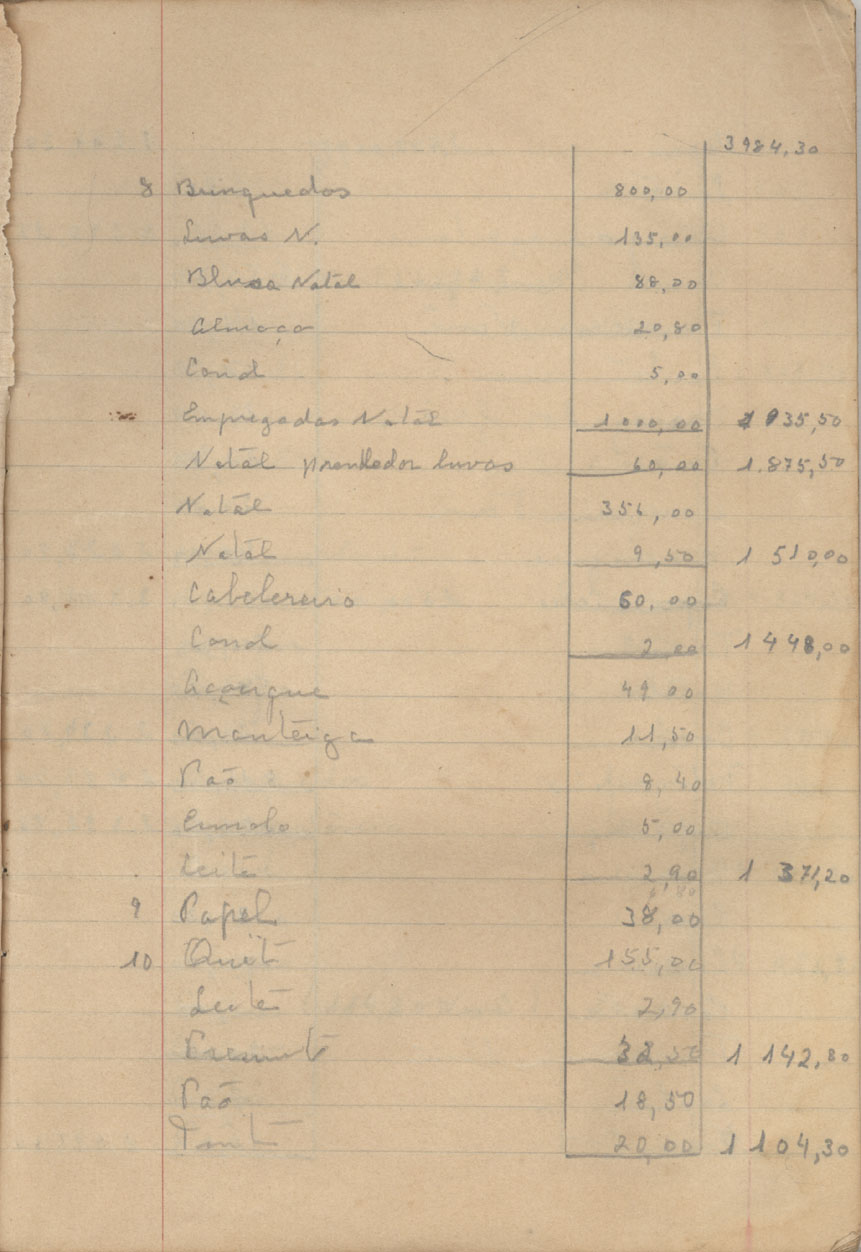 3984,30
8 Brinquedos 800,00
Luvas N. 135,00
Blusa Natal 88,00
Almoço 20,80
Cond 5,00
Empregadas Natal 1000,00 1935,50
Natal prendedor luvas 60,00 1.875,50
Natal 356,00
Natal 9,50 1 510,00
Cabelereiro 60,00
Cond 2,00 1448,00
Açougue 49 00
Manteiga 11,50
Pão 8,40
5,00
Leite 2,90 1 371,20
9 Papel 38,00
10 Quit 155,00
Leite 2,90
32,50 1 142,80
Pão 18,50
20,00 1 104,30